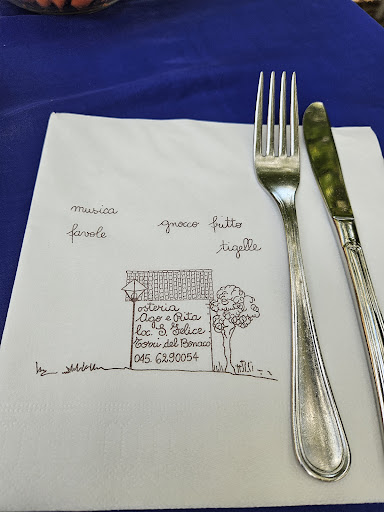 musica
gnocco fritto
favole
tigelle
osteria
Ago e Rita
loc. S. Felice
Torri del Benaco
045. 6290054